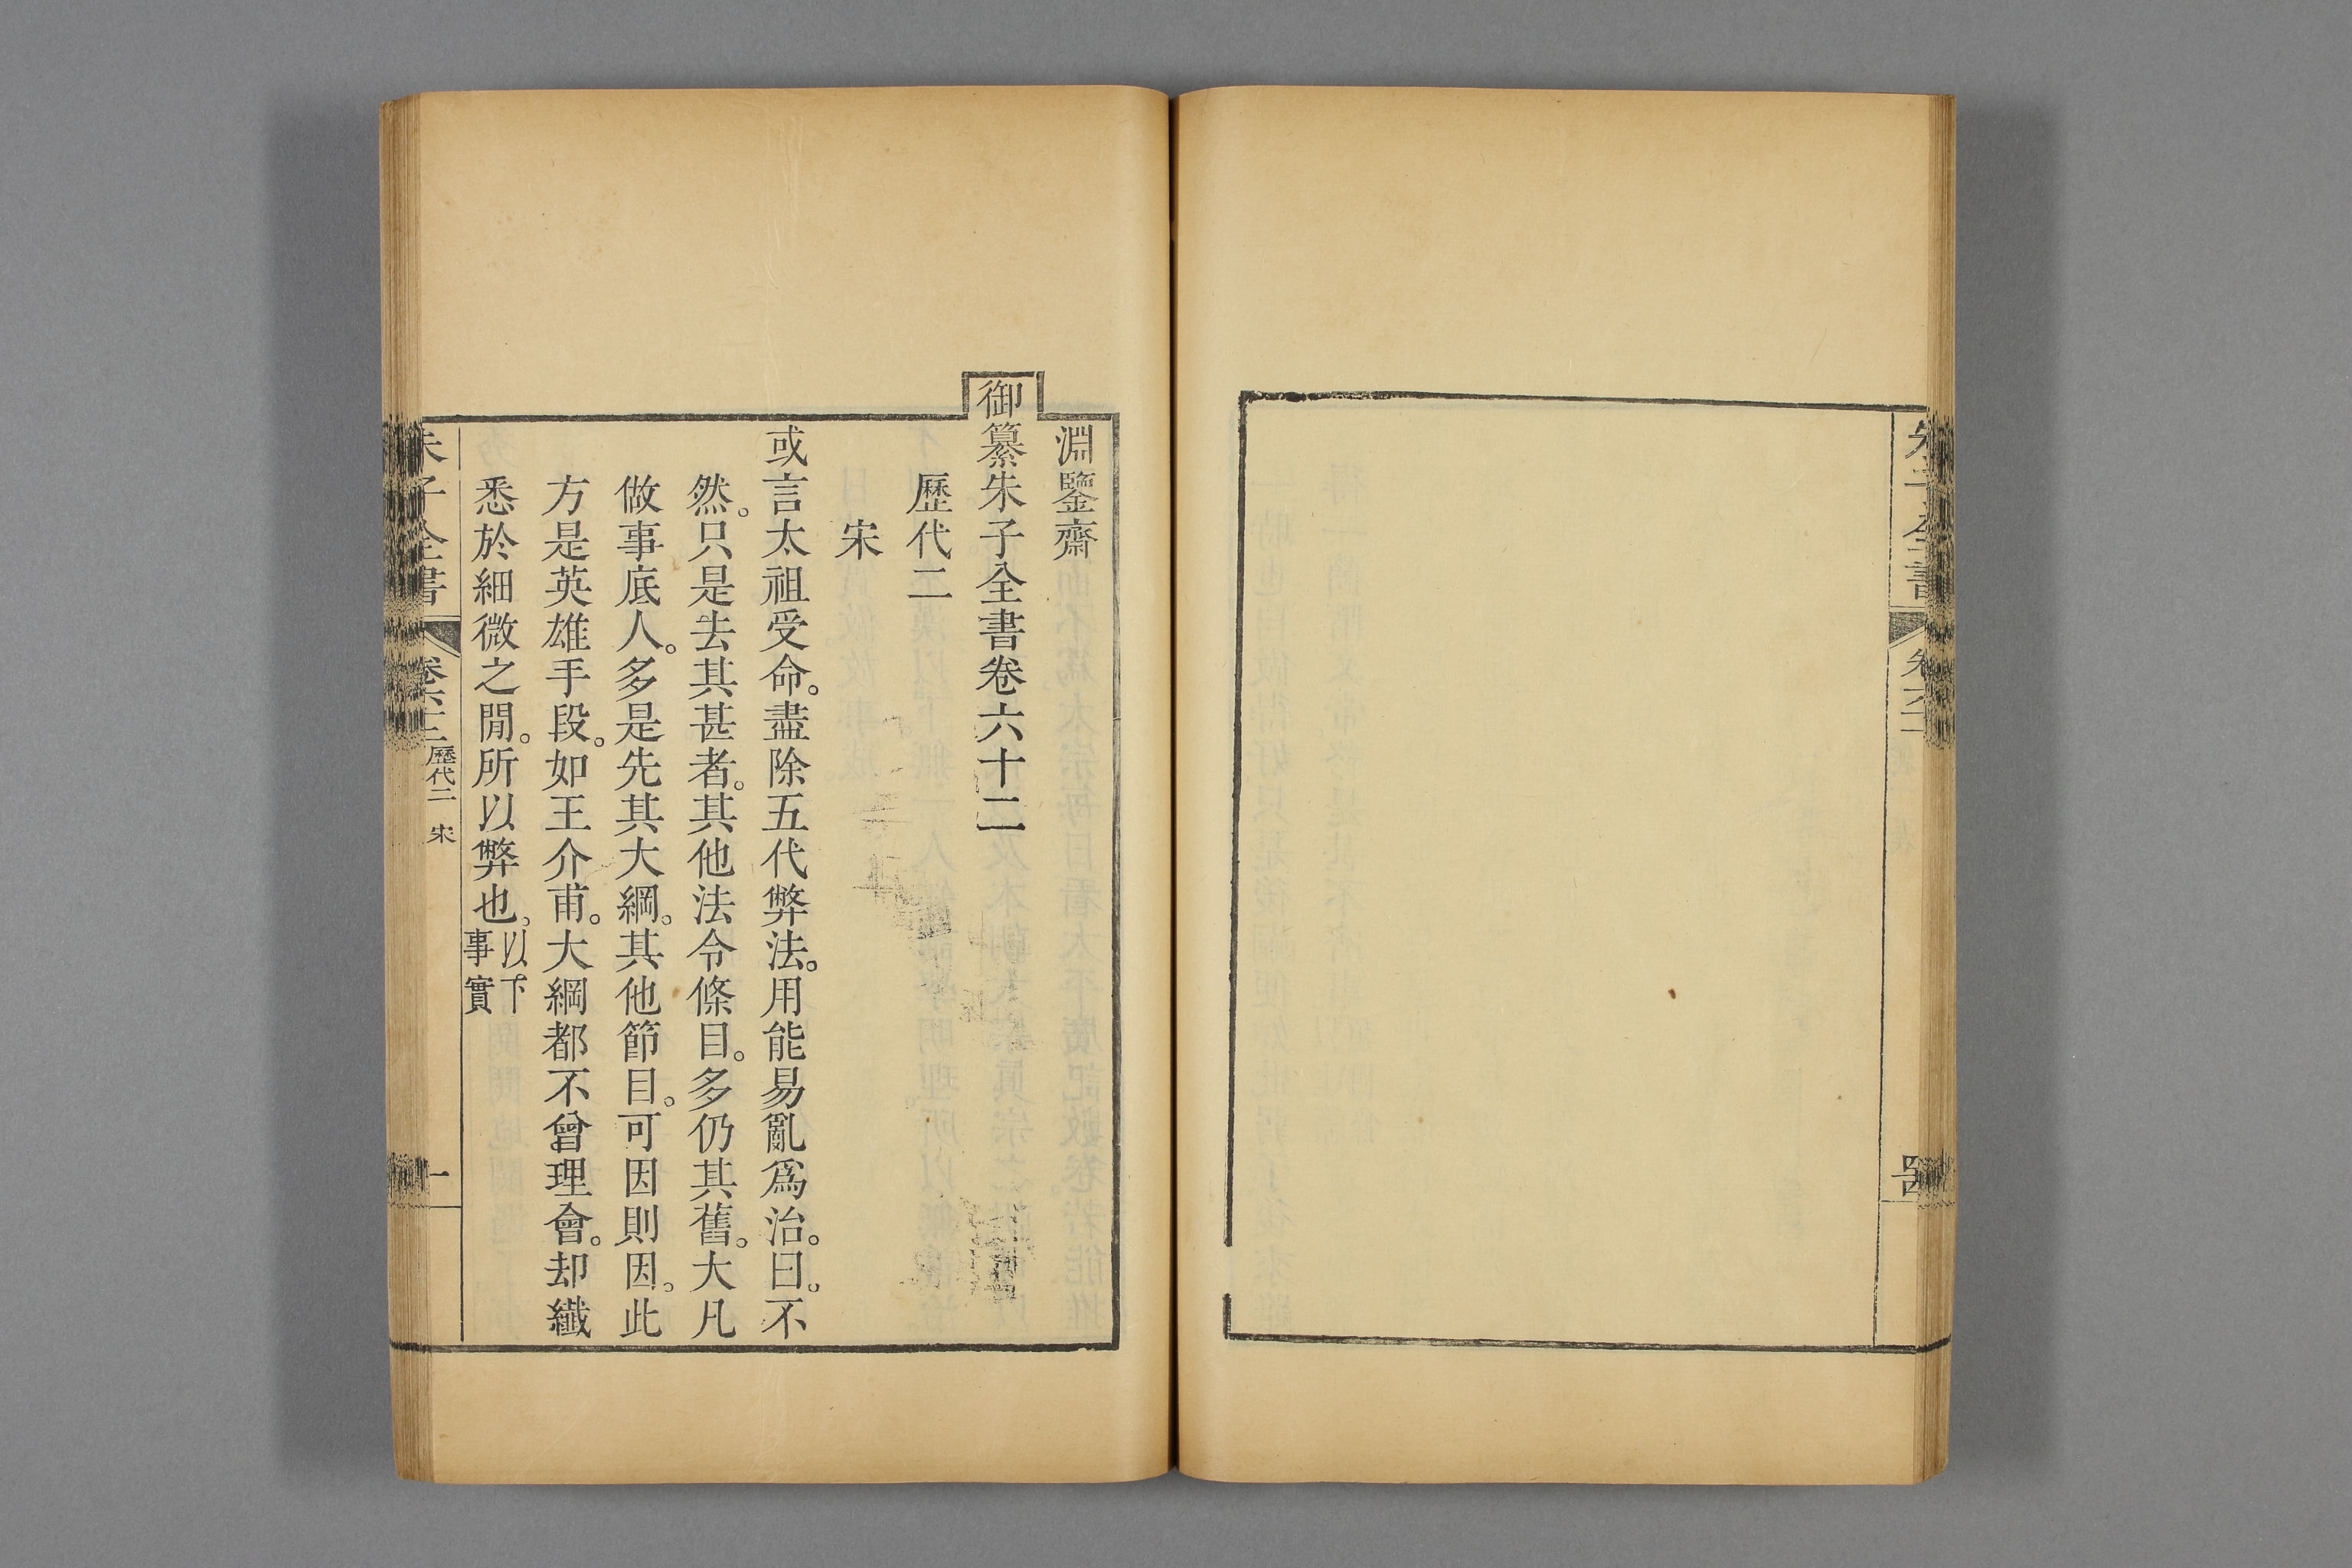 淵鑒齋
御纂朱子全書卷六十二
歷代二
宋
或言太祖受命。盡除五代弊法。用能易亂爲治。曰。不
然。只是去其甚者。其他法令條目。多仍其舊。大凡
做事底人。多是先其大綱。其他節目。可因則因。此
方是英雄手段。如王介甫。大綱都不曾理會。却纖
悉於細微之閒。所以弊也。以下
事實
朱子全書
歷代二 宋
一